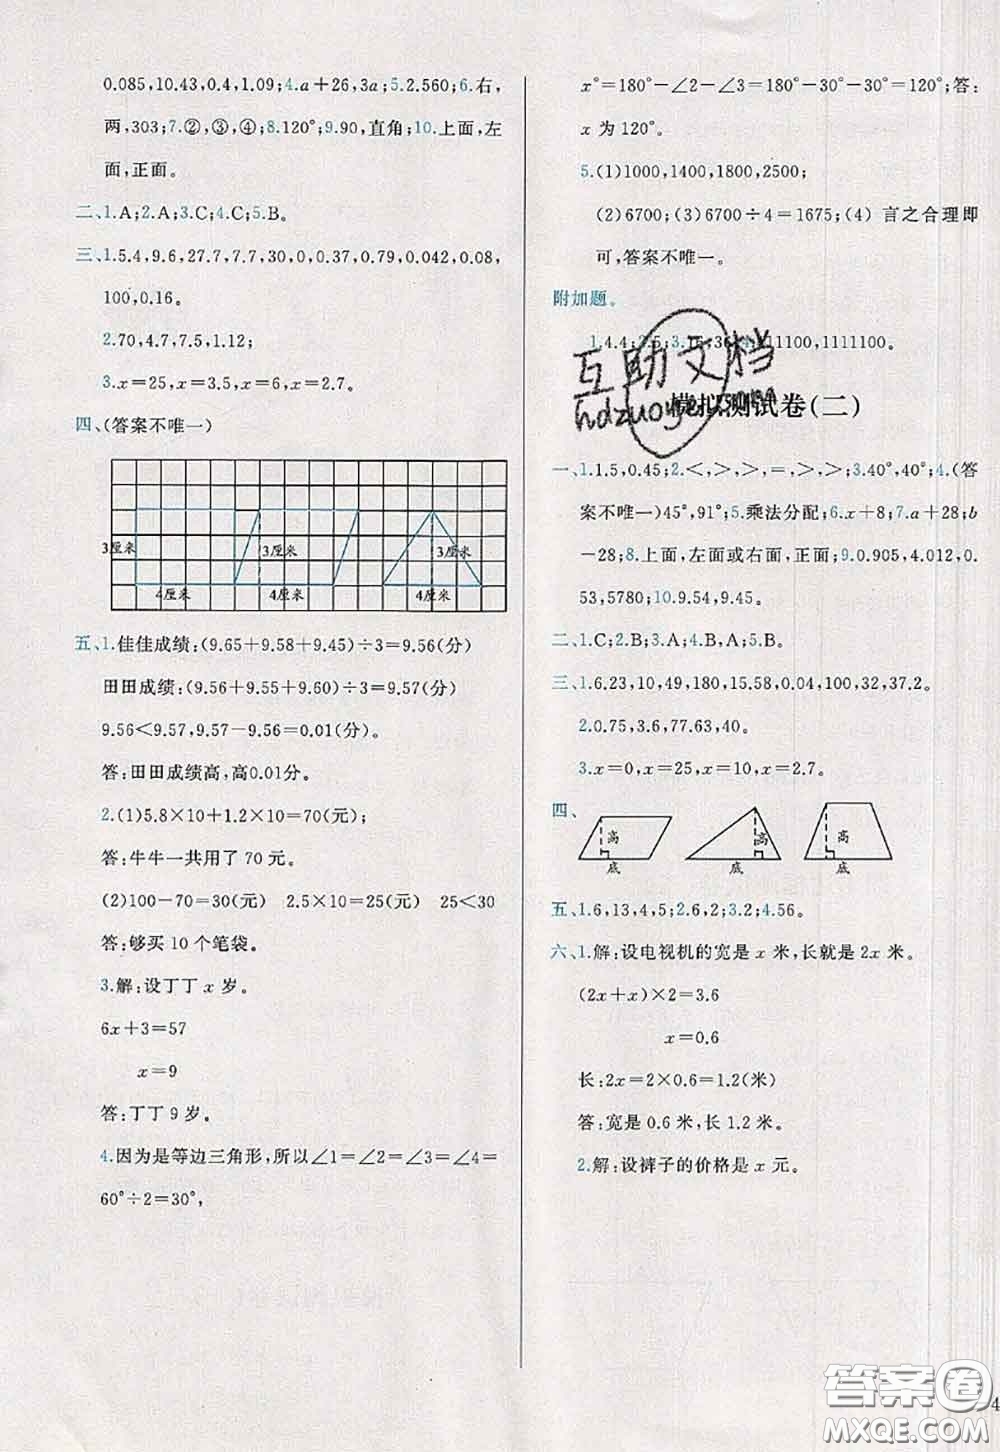 0.085,10.43,0.4,1.09;4.a+26,3a;5.2.560;6.右,
两,303;7.②,③,④;8.120°;9.90,直角;10.上面,左
面,正面。
二、1.A;2.A;3.C;4.C;5.B。
三、1.5.4,9.6,27.7,7.7,30,0,0.37,0.79,0.042,0.08,
100,0.16。
2.70,4.7,7.5,1.12;
3.x=25,x=3.5,x=16,x=2.7。
四、(答案不唯一)
3厘米
3厘米
3厘米
4厘米
4厘米
4厘米
五、1.佳佳成绩:(9.65+9.58+9.45)÷3=9.56(分)
田田成绩:(9.56+9.55+9.60)÷3=9.57(分)
9.56<9.57,9.57-9.56=0.01(分)。
答:田田成绩高,高0.01分。
2.(1)5.8×10+1.2×10=70(元);
答:牛牛一共用了 70 元。
(2)100-70=30(元) 2.5×10=25(元) 25<30
答:够买 10 个笔袋。
3.解:设丁丁 x 岁。
6x+3=57
x=9
答:丁丁 9 岁。
4.因为是等边三角形,所以∠1=∠2=∠3=∠4=
60°÷2=30°,
x°=180°-∠2-∠3=180°-30°-30°=120°;答:
x 为 120°。
5.(1)1000,1400,1800,2500;
(2)6700;(3)6700÷4=1675;(4) 言之合理即
可,答案不唯一。
附加题。
1.4.4;2.5;3.15,36;4.111100,1111100。
互助文档
hdzuoye
模拟测试卷(二)
一、1.1.5,0.45;2.<,>,>,=,>,>;3.40°,40°;4.(答
案不唯一)45°,91°;5.乘法分配;6.x+8;7.a+28;b
-28;8.上面,左面或右面,正面;9.0.905,4.012,0.
53,5780;10.9.54,9.45。
二、1.C;2.B;3.A;4.B,A;5.B。
三、1.6.23,10,49,180,15.58,0.04,100,32,37.2。
2.0.75,3.6,77.63,40。
3.x=0,x=25,x=10,x=2.7。
四、
高
底
高
底
高
底
五、1.6,13,4,5;2.6,2;3.2;4.56。
六、1.解:设电视机的宽是 x 米,长就是 2x 米。
(2x+x)×2=3.6
x=0.6
长:2x=2×0.6=1.2(米)
答:宽是 0.6 米,长 1.2 米。
2.解:设裤子的价格是 x 元。
答案圈
MXQE.COM
4